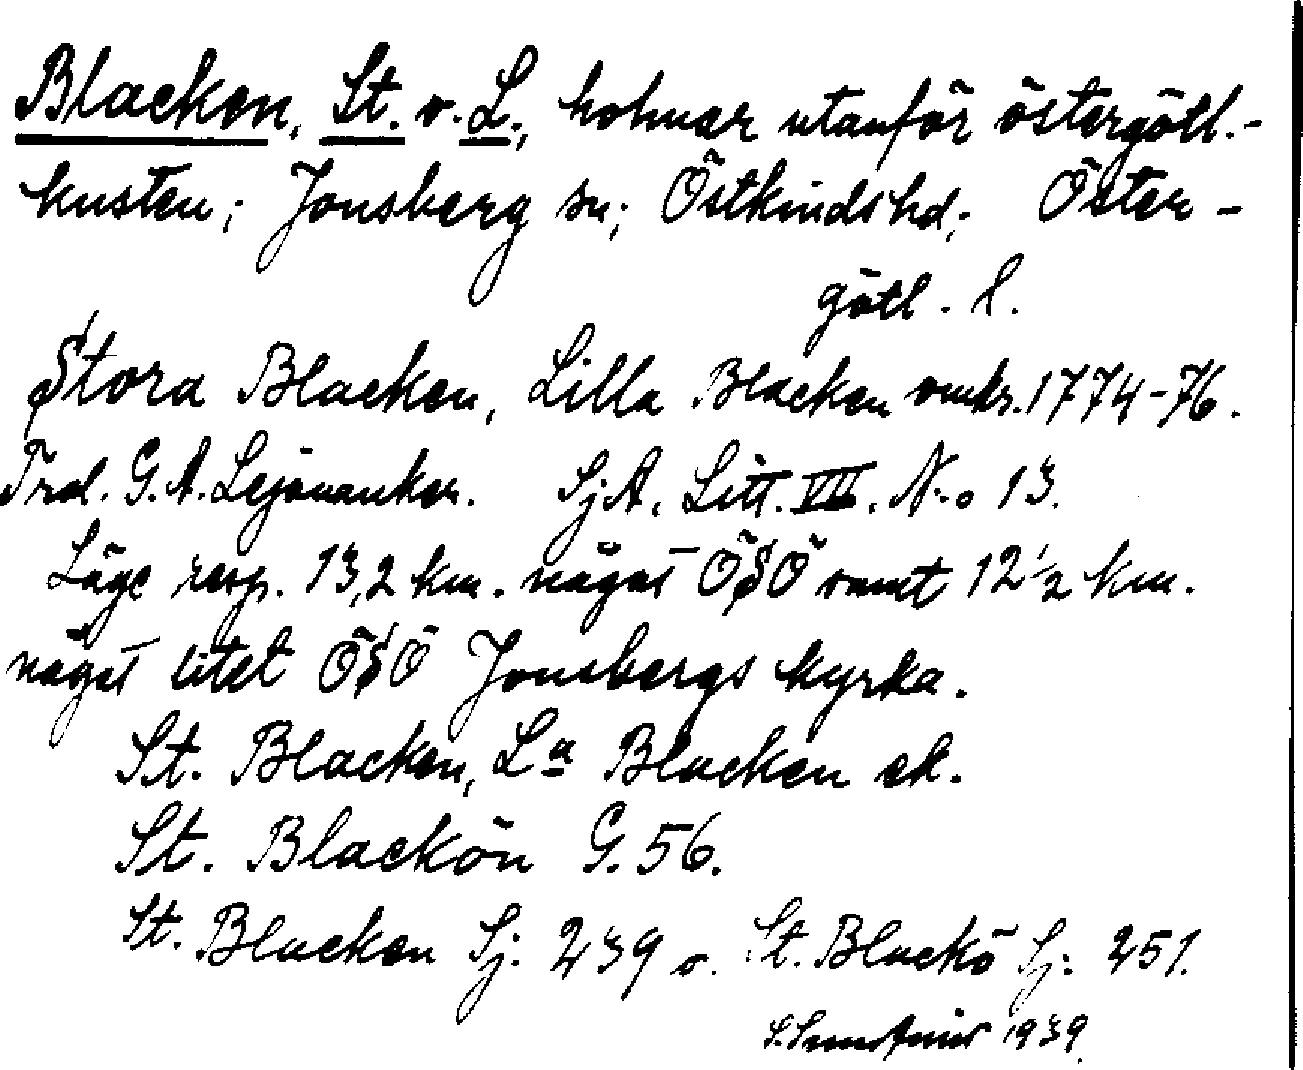 Blacken, St. o. L., holmar utanför östergötl.-
kusten; Jonsberg sn; Östkinds hd; Öster-
götl. l.
Stora Blacken, Lilla Blacken omkr. 1774-76.
Trol. G. A. Lejonanker. Sj. A. Litt. VIII. N:o 13.
Läge resp. 13,2 km. något ÖSÖ samt 12 1/2 km.
något litet ÖSÖ Jonsbergs kyrka.
St. Blacken, La Blacken ek.
St. Blackön G. 56.
St. Blacken Sj. 239 o. St. Blackö Sj. 251.
1939